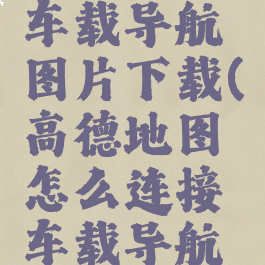 车载导航
图片下载(
高德地图
怎么连接
车载导航